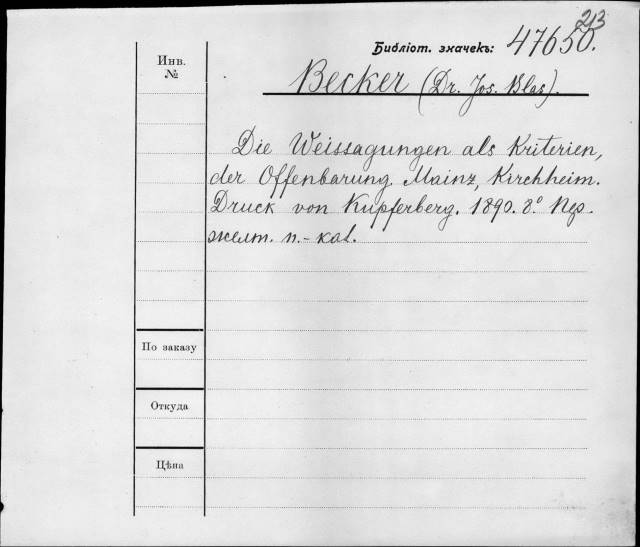 213
Библіот. значекъ: 47650.
Инв.
№
Becker (Dr. Jos. Blas).
Die Weissagungen als Kriterien,
der Offenbarung. Mainz, Kirchheim.
Druck von Kupferberg. 1890. 8º Пер.
желт. п.-кал.
По заказу
Откуда
Цѣна